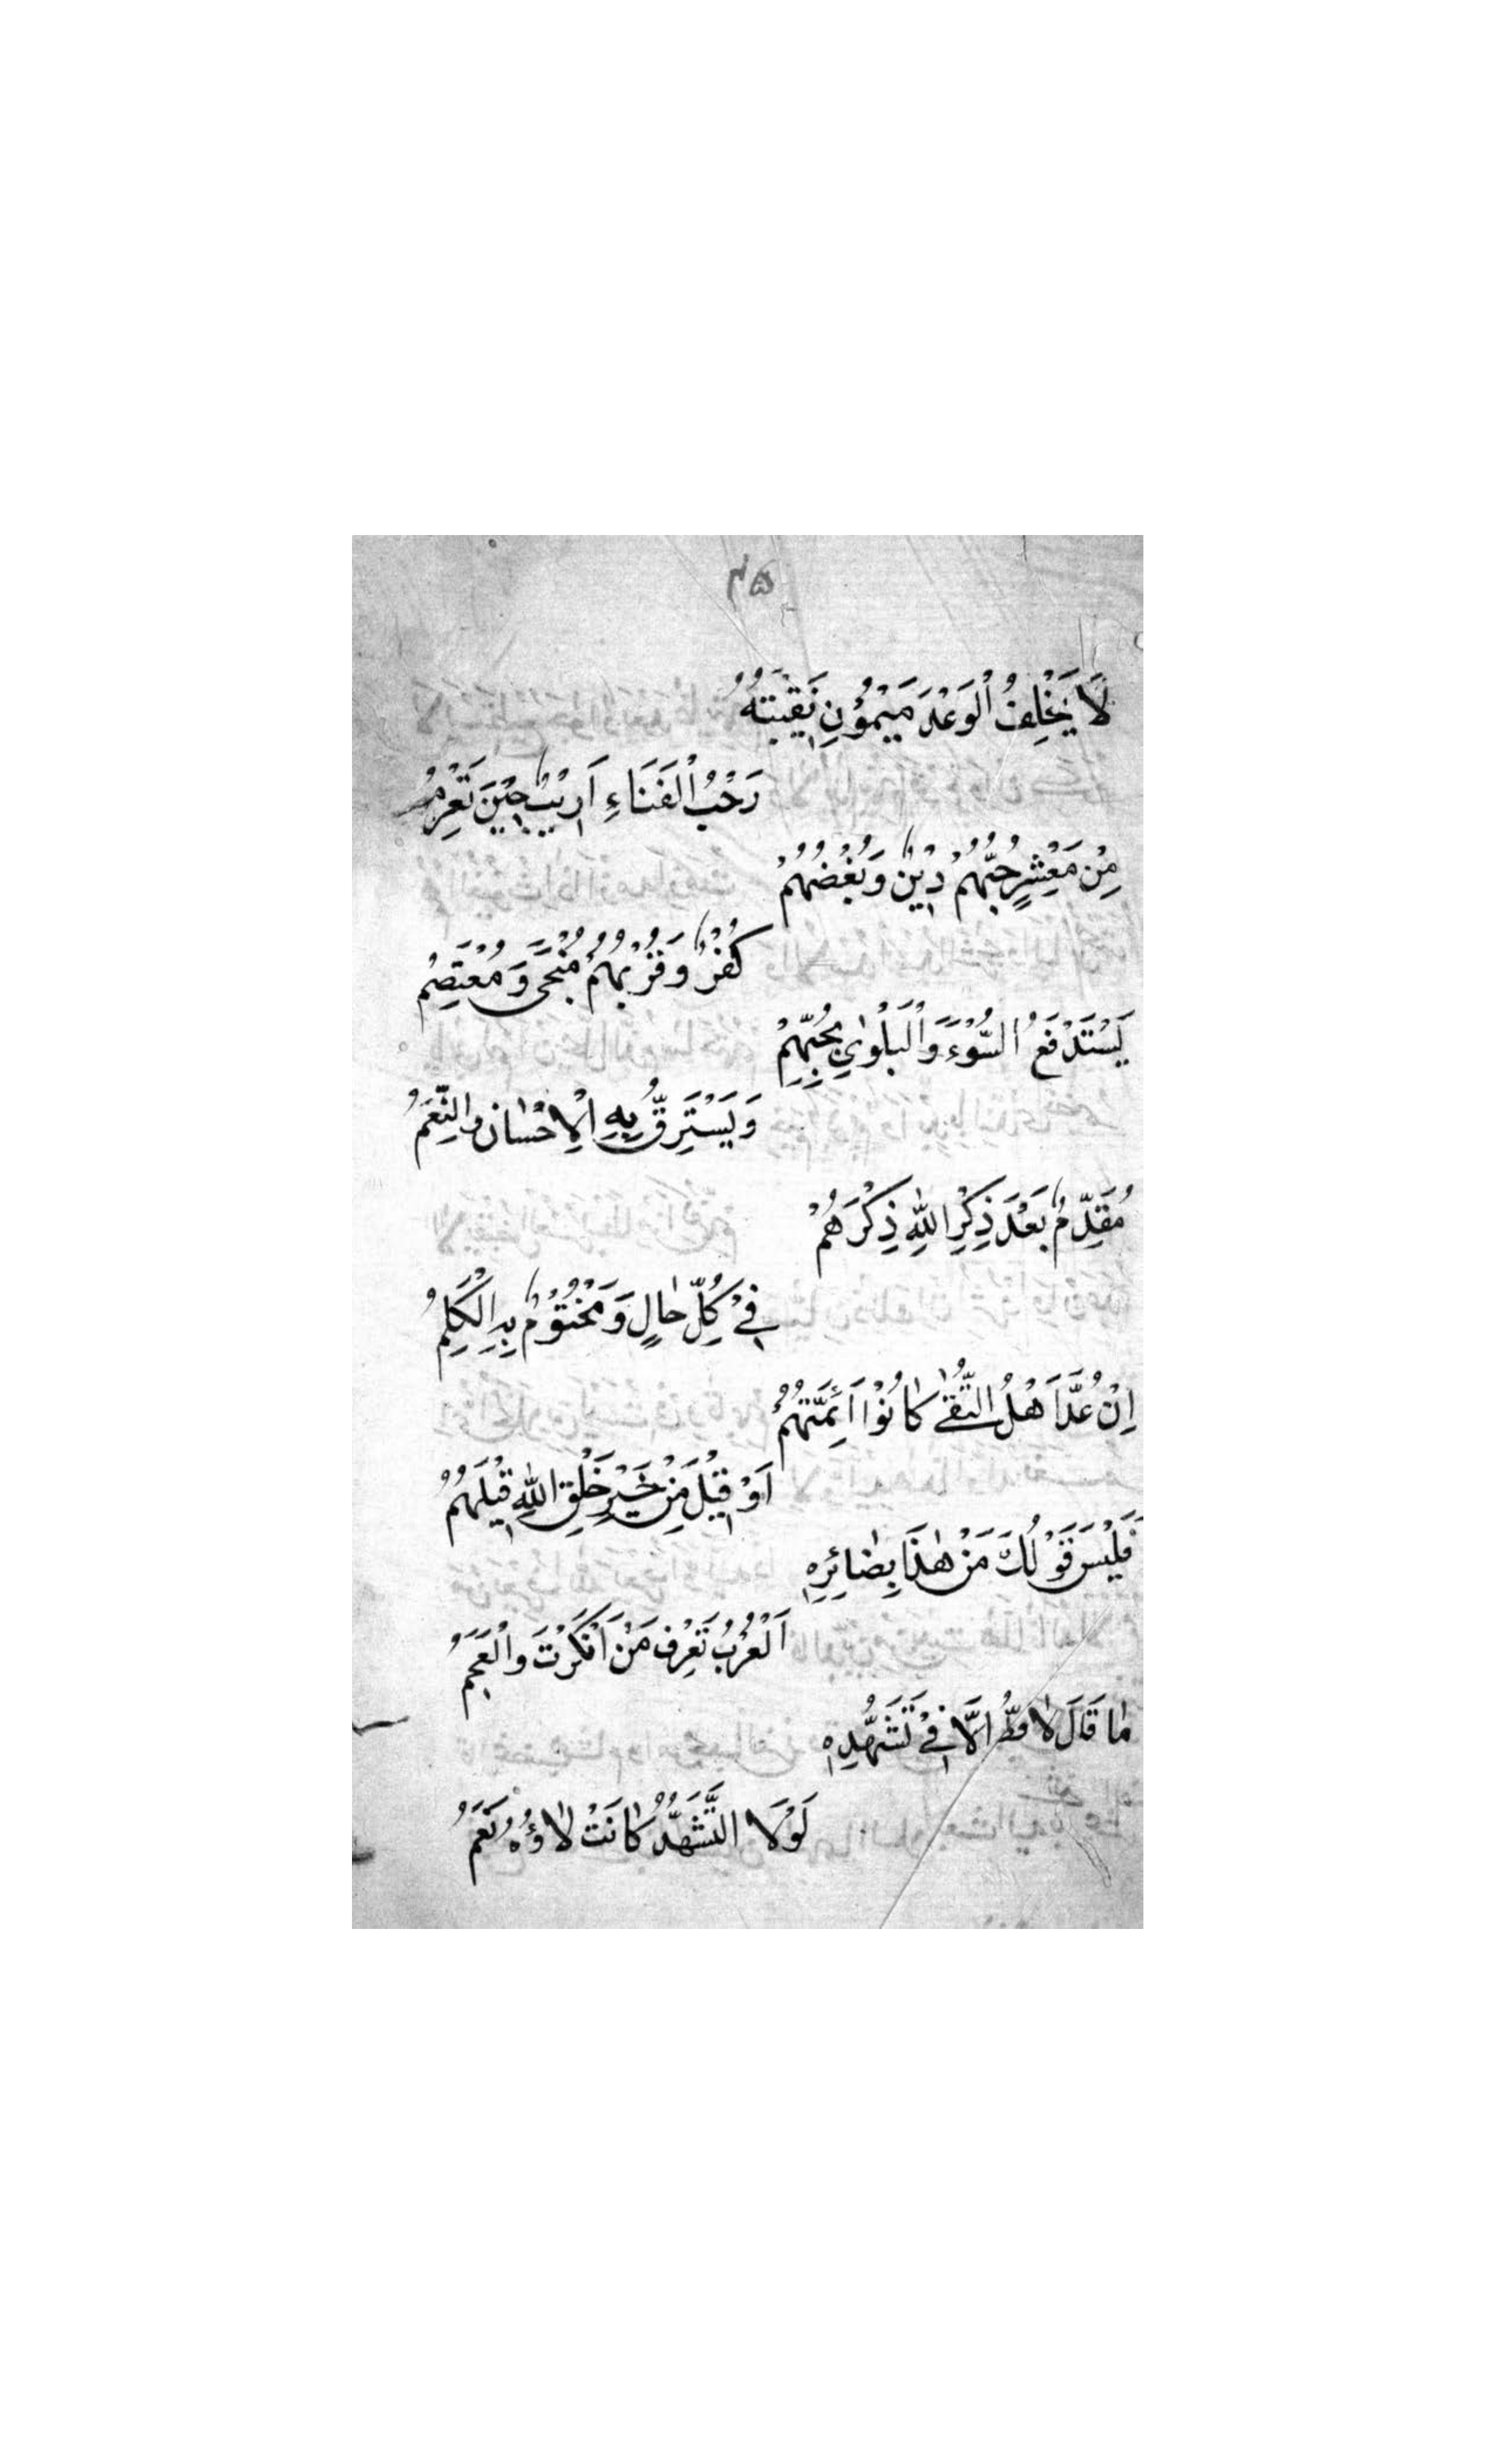 ۴۵
لَا يَخْلِفُ الْوَعْدَ مَيْمُوْنِ نَقِيْبَتُهُ
رَحْبُ الْفَنَاءِ اَرِيْبٌ حِيْنَ تَعْرِمُ
مِنْ مَعْشِرٍ حُبُّهُمْ دِيْنٌ وَبُغْضُهُمْ
كُفْرٌ وَقُرْبُهُمْ مُنْجًى وَمُعْتَصِمُ
يَسْتَدْفَعُ السُّوْءَ وَالْبَلْوٰى بِحُبِّهِمْ
وَيَسْتَرِقُّ بِهِ الْاِحْسٰان وَالنِّعَمُ
مُقَدِّمٌ بَعْدَ ذِكْرِ اللّٰهِ ذِكْرَهُمْ
فِيْ كُلِّ حٰالٍ وَمَخْتُوْمٌ بِهِ الْكَلِمُ
اِنْ عُدَّ اَهْلُ التُّقٰى كٰانُوْا اَئِمَّتَهُمْ
اَوْ قِيْلَ مَنْ خَيْرِ خَلْقِ اللّٰهِ قِيْلَهُمُ
فَلَيْسَ قَوْلُكَ مَنْ هٰذَا بِضٰائِرِهٖ
اَلْعُرْبُ تَعْرِف مَنْ اَنْكَرْتَ وَالْعَجَمُ
مٰا قَالَ لٰا قطُّ اِلَّا فِيْ تَشَهُّدِهٖ
لَوْلَا التَّشَهُّدُ كٰانَتْ لٰاؤُهُ نَعَمُ